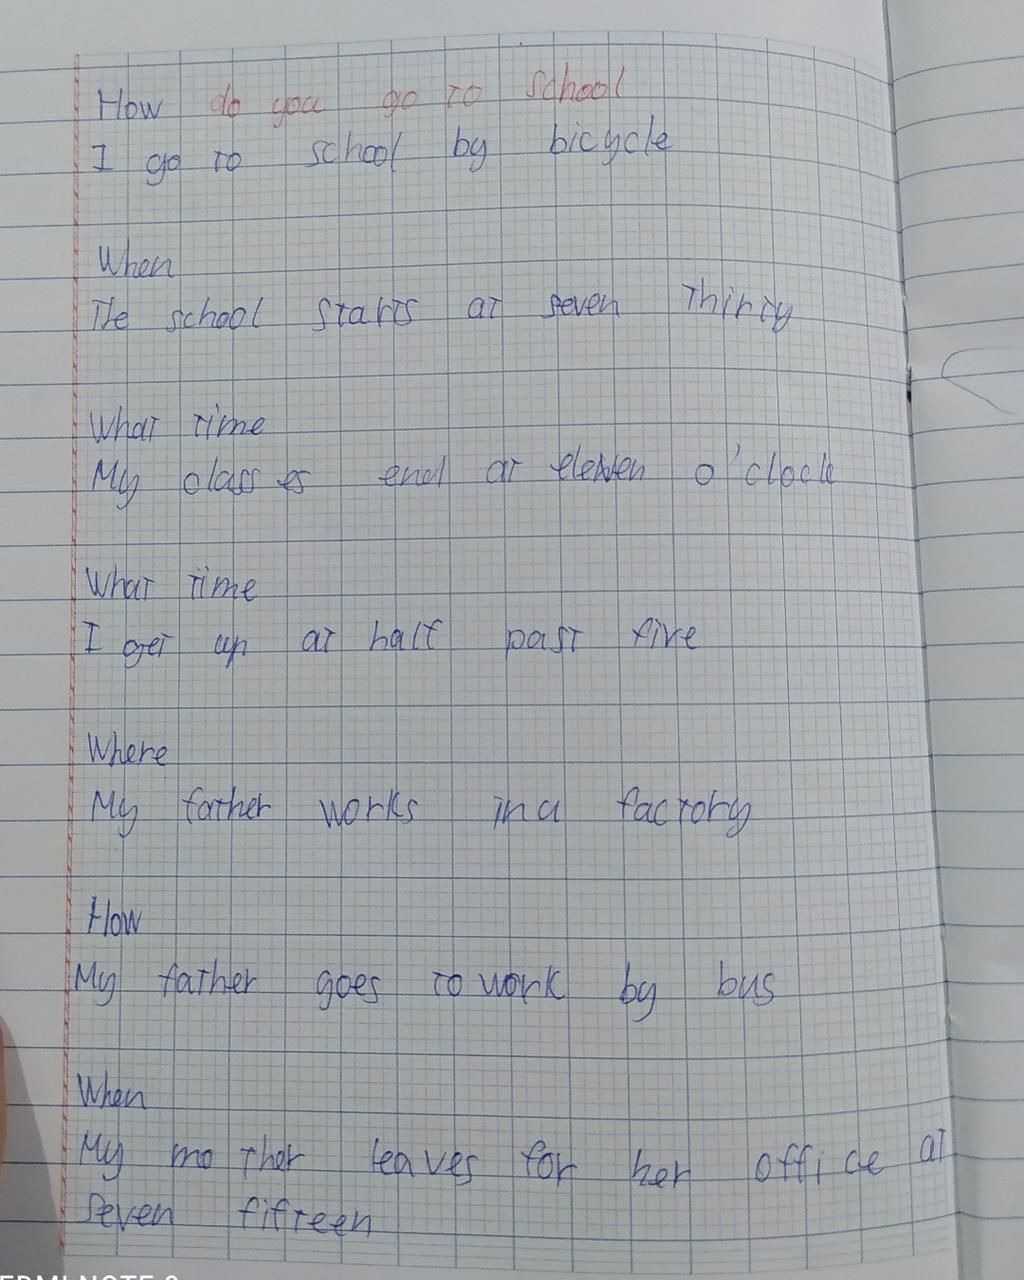 How do you go to school
I go to school by bicycle
When
The school starts at seven thirty
What time
My classes end at eleven o'clock
What time
I get up at half past five
Where
My father works in a factory
How
My father goes to work by bus
When
My mother leaves for her office at
seven fifteen